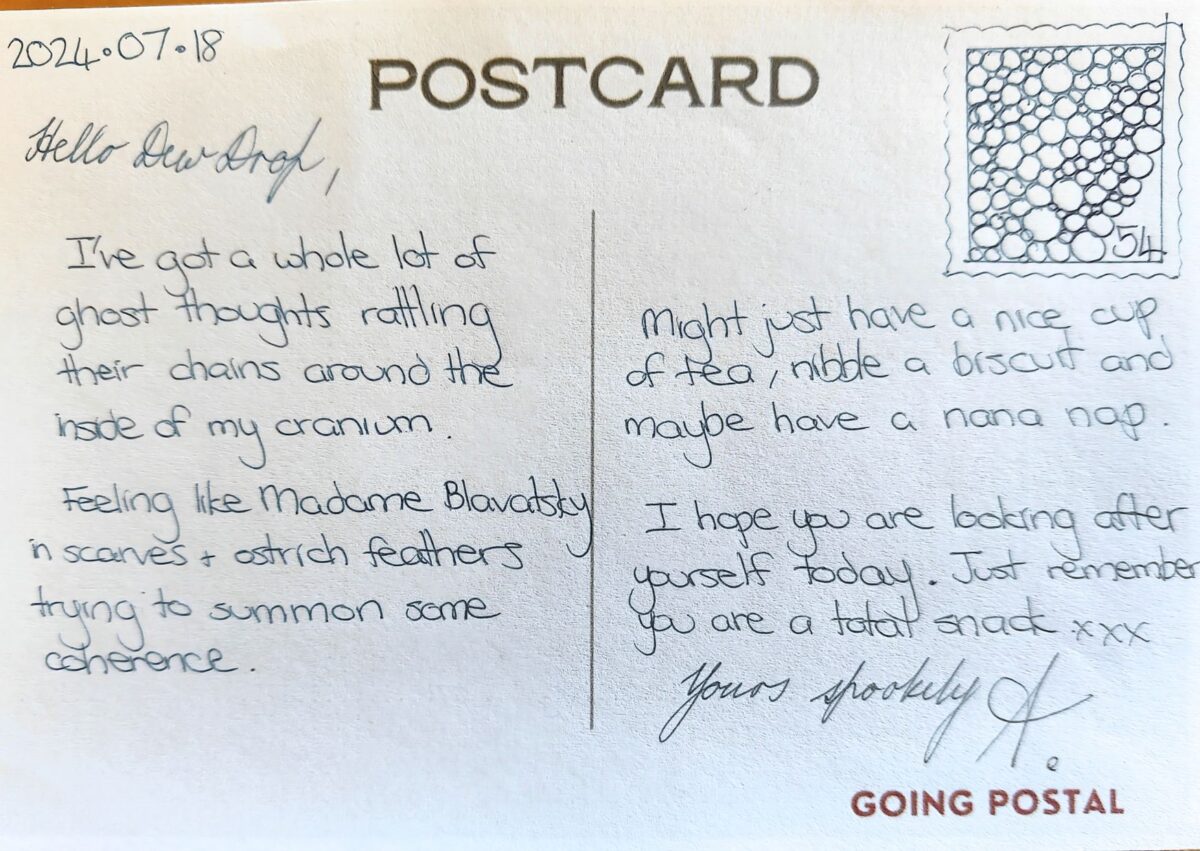 2024.07.18
POSTCARD
Hello Dew Drop,
I've got a whole lot of
ghost thoughts rattling
their chains around the
inside of my cranium.
Feeling like Madame Blavatsky
in scarves + ostrich feathers
trying to summon some
coherence.
54
Might just have a nice cup
of tea, nibble a biscuit and
maybe have a nana nap.
I hope you are looking after
yourself today. Just remember
you are a total snack xxx
Yours spookily A.
GOING POSTAL